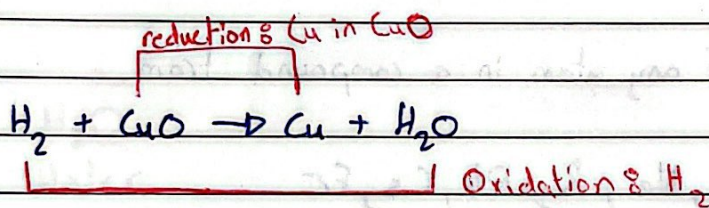 reduction : Cu in CuO
H₂ + CuO → Cu + H₂O
Oxidation : H₂